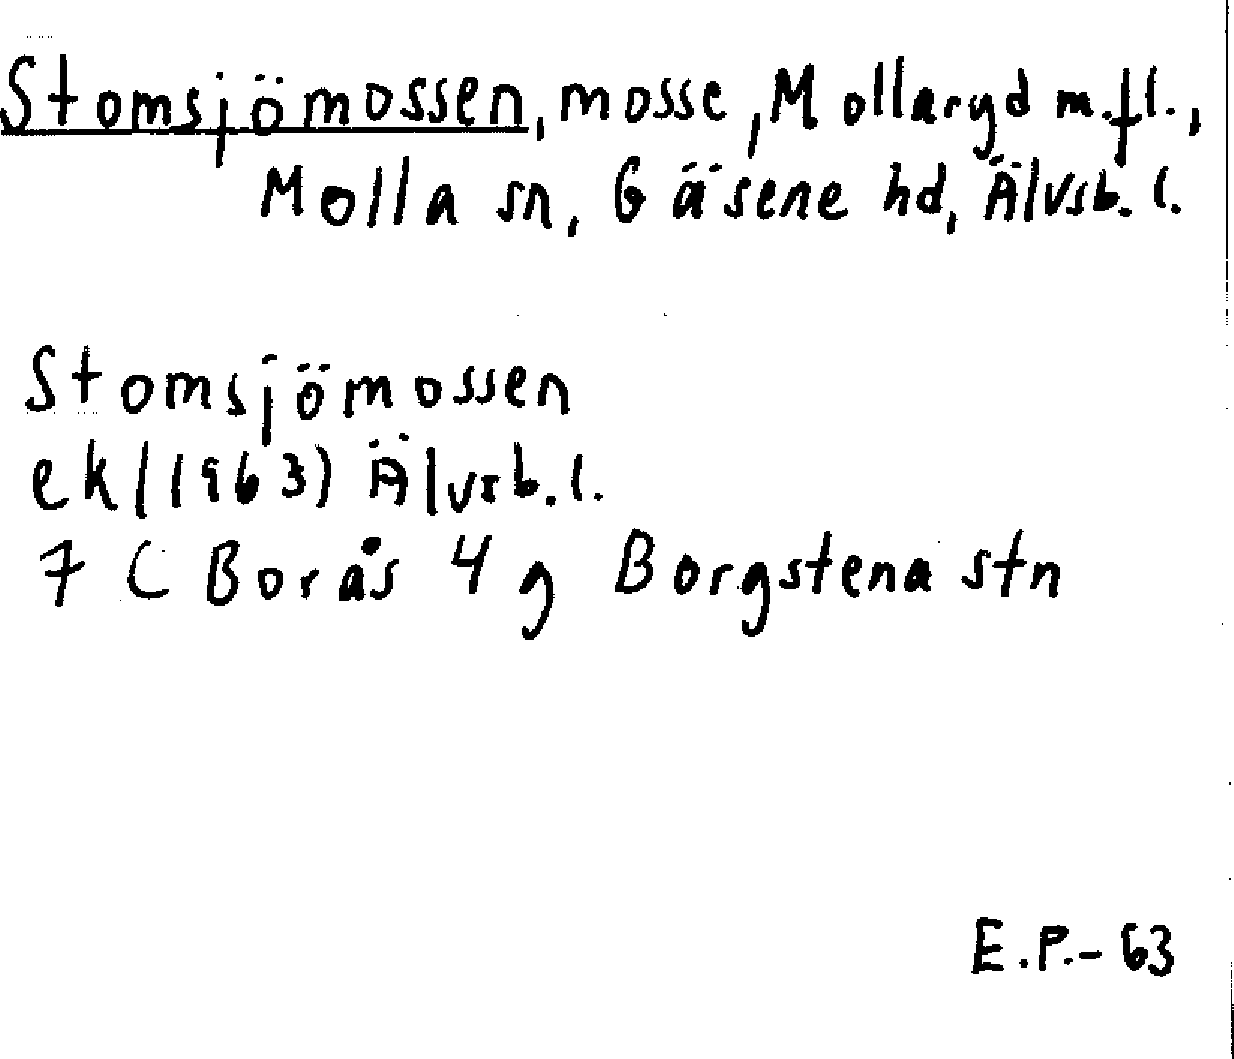 Stomsjömossen, mosse, Mollaryd m.fl.,
Molla sn, Gäsene hd, Älvsb. l.
Stomsjömossen
ek/(1963) Älvsb. l.
7 C Borås 4 g Borgstena stn
E.P.-63